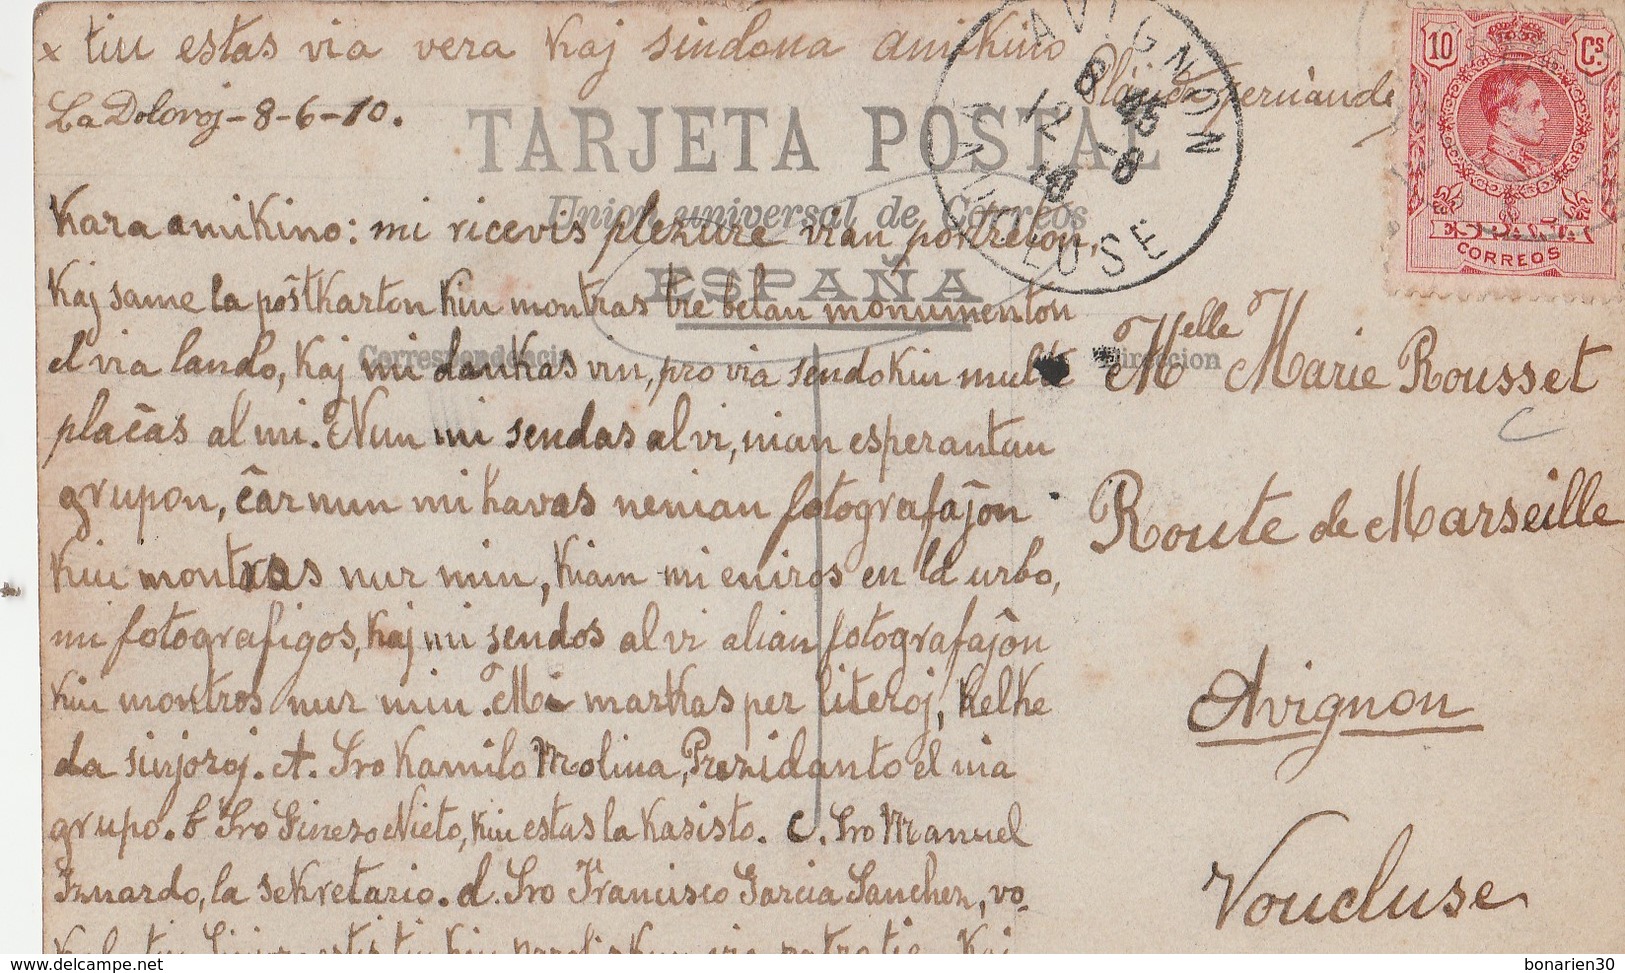 x tiu estas via vera kaj sindona amikino
La Doloroj - 8-6-10.
TARJETA POSTAL
Union universal de Correos
ESPAÑA
Correspondencia
Direccion
AVIGNON
VAUCLUSE
10 Cs.
ESPAÑA
CORREOS
Kara amikino: mi ricevis plezure vian portreton,
kaj same la poŝtkarton kiu montras tre belan monumenton
el via lando, kaj mi dankas vin, pro via sendo kiu multe
plaĉas al mi. Nun mi sendas al vi, nian esperantan
grupon, ĉar nun mi havas nenian fotografaĵon
kiu montras nur min, kiam mi eniros en la urbo,
mi fotografigos, kaj mi sendos al vi alian fotografaĵon
kiu montros nur min. Mi markas per literoj, kelke
da sinjoroj. A. Sro Kamilo Molina, Prezidanto el nia
grupo. b Sro Ginezo Nieto, kiu estas la kasisto. C. Sro Manuel
Iznardo, la sekretario. d. Sro Francisco Garcia Sanchez, vo-
Melle Marie Rousset
Route de Marseille
Avignon
Voucluse
bonarien30